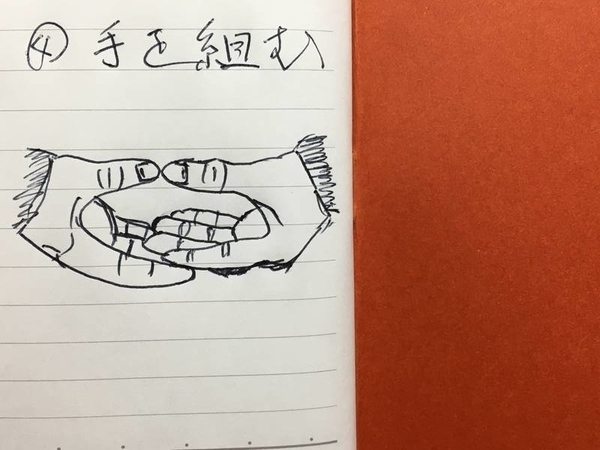 ④ 手を組む